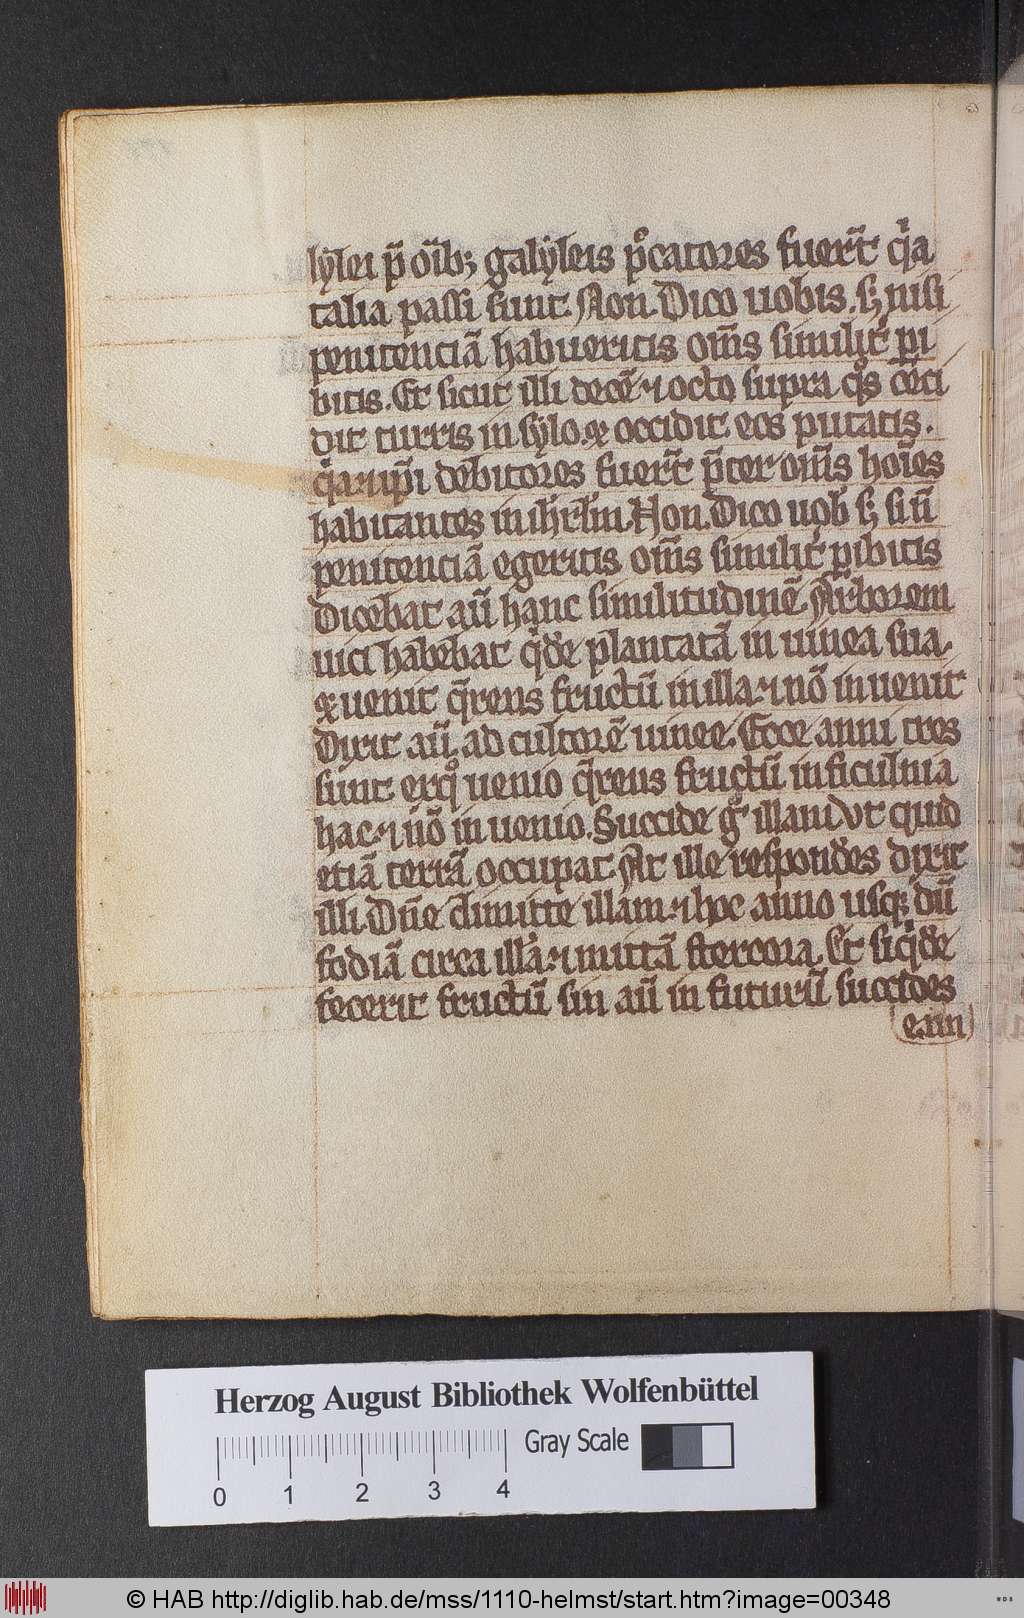 lylei p̄ oīb; galyleis pͦcatores fuer̄t qͥa
talia passi sunt. Non. Dico uobis. sꝫ nisi
penitenciā habueritis om̄s similiꝉ pi
bitis. Et sicut illi decē ⁊ octo supra qͦs ceci
dit turris in sylo. ⁊ occidit eos putatis.
qͥa ⁊ ip̄i debitores fuer̄t p̄ter om̄s hoīes
habitantes in ihrl̄m. Non. Dico uob̄ sꝫ si n̄
penitenciā egeritis om̄s similiꝉ pibitis
Dicebat aū hanc similitudinē. Arborem
uici habebat qͥde plantatā in uinea sua.
⁊ uenit q̄rens fructū in illa. ⁊ nō inuenit
Dixit aū ad cultorē uinee. Ecce anni tres
sunt exqͦ uenio q̄rens fructū in ficulnia
hac. ⁊ nō inuenio. Succide gͦ illam vt quid
etiā terrā occupat. At ille respondēs dixit
illi. Dn̄e dimitte illam. ⁊ hoc anno usqꝫ dū
fodiā circa illā. ⁊ mittā stercora. Et siqͥde
fecerit fructū sin aū in futurū succides
eam
Herzog August Bibliothek Wolfenbüttel
Gray Scale
0 1 2 3 4
© HAB http://diglib.hab.de/mss/1110-helmst/start.htm?image=00348